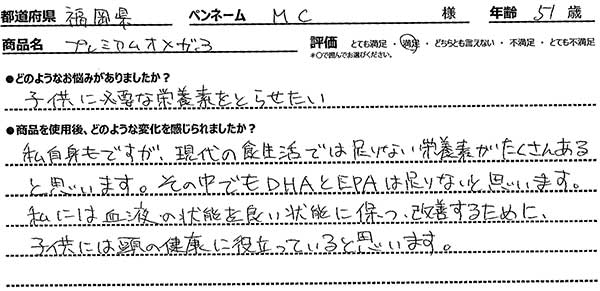 都道府県 福岡県 ペンネーム MC 様 年齢 51 歳
商品名 プレミアムオメガ3 評価 とても満足・満足・どちらとも言えない・不満足・とても不満足
*○で囲んでお選びください。
●どのようなお悩みがありましたか?
子供に必要な栄養素をとらせたい
●商品を使用後、どのような変化を感じられましたか?
私自身もですが、現代の食生活では足りない栄養素がたくさんある
と思います。その中でもDHAとEPAは足りないと思います。
私には血液の状態を良い状態に保つ、改善するために、
子供には頭の健康に役立っていると思います。